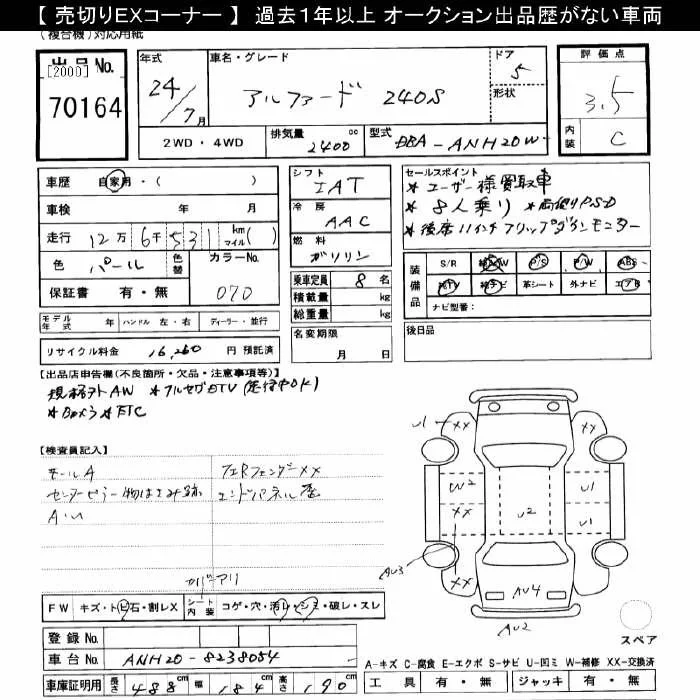 【 売切りEXコーナー 】 過去１年以上 オークション出品歴がない車両
(複合機)対応用紙
出品No.
[2000]
70164
年式
24/7月
車名・グレード
アルファード 240S
ドア
5
形状
評価点
3.5
内装
C
2WD・4WD
排気量 2400 cc
型式 DBA-ANH20W-
車歴 自家用・( )
車検 年 月
走行 12万6千531 km マイル( )
色 パール 色替
カラーNo. 070
保証書 有・無
シフト
IAT
冷房
AAC
燃料
ガソリン
乗車定員 8 名
積載量 kg
総重量 kg
セールスポイント
★ユーザー様買取車
★8人乗り ★両側PSD
★後席11インチフリップダウンモニター
装備品
S/R 純AW P/S P/W ABS
純TV 純ナビ 革シート 外ナビ エアB
ナビ型番：
モデル年式 年 ハンドル 左・右 ディーラー・並行
リサイクル料金 16,260 円 預託済
名変期限 月 日
後日品
【出品店申告欄(不良箇所・欠品・注意事項等)】
規格外AW ★フルセグDTV(走行中OK)
★Bカメラ★ETC
【検査員記入】
モールA
フロントRフェンダーXX
センターピラー
エンドパネル歴
A・U
カバーアリ
FW キズ・トビ石・割レX
シート内装 コゲ・穴・汚レ・シミ・破レ・スレ
登録No.
車台No. ANH20-8238054
車庫証明用 長さ 488cm 幅 184cm 高さ 190cm
U1 XX XX
W2 U1
XX U2 U1
AU3 XX AU4
AU2
スペア
A-キズ C-腐食 E-エクボ S-サビ U-凹ミ W-補修 XX-交換済
工具 有・無 ジャッキ 有・無